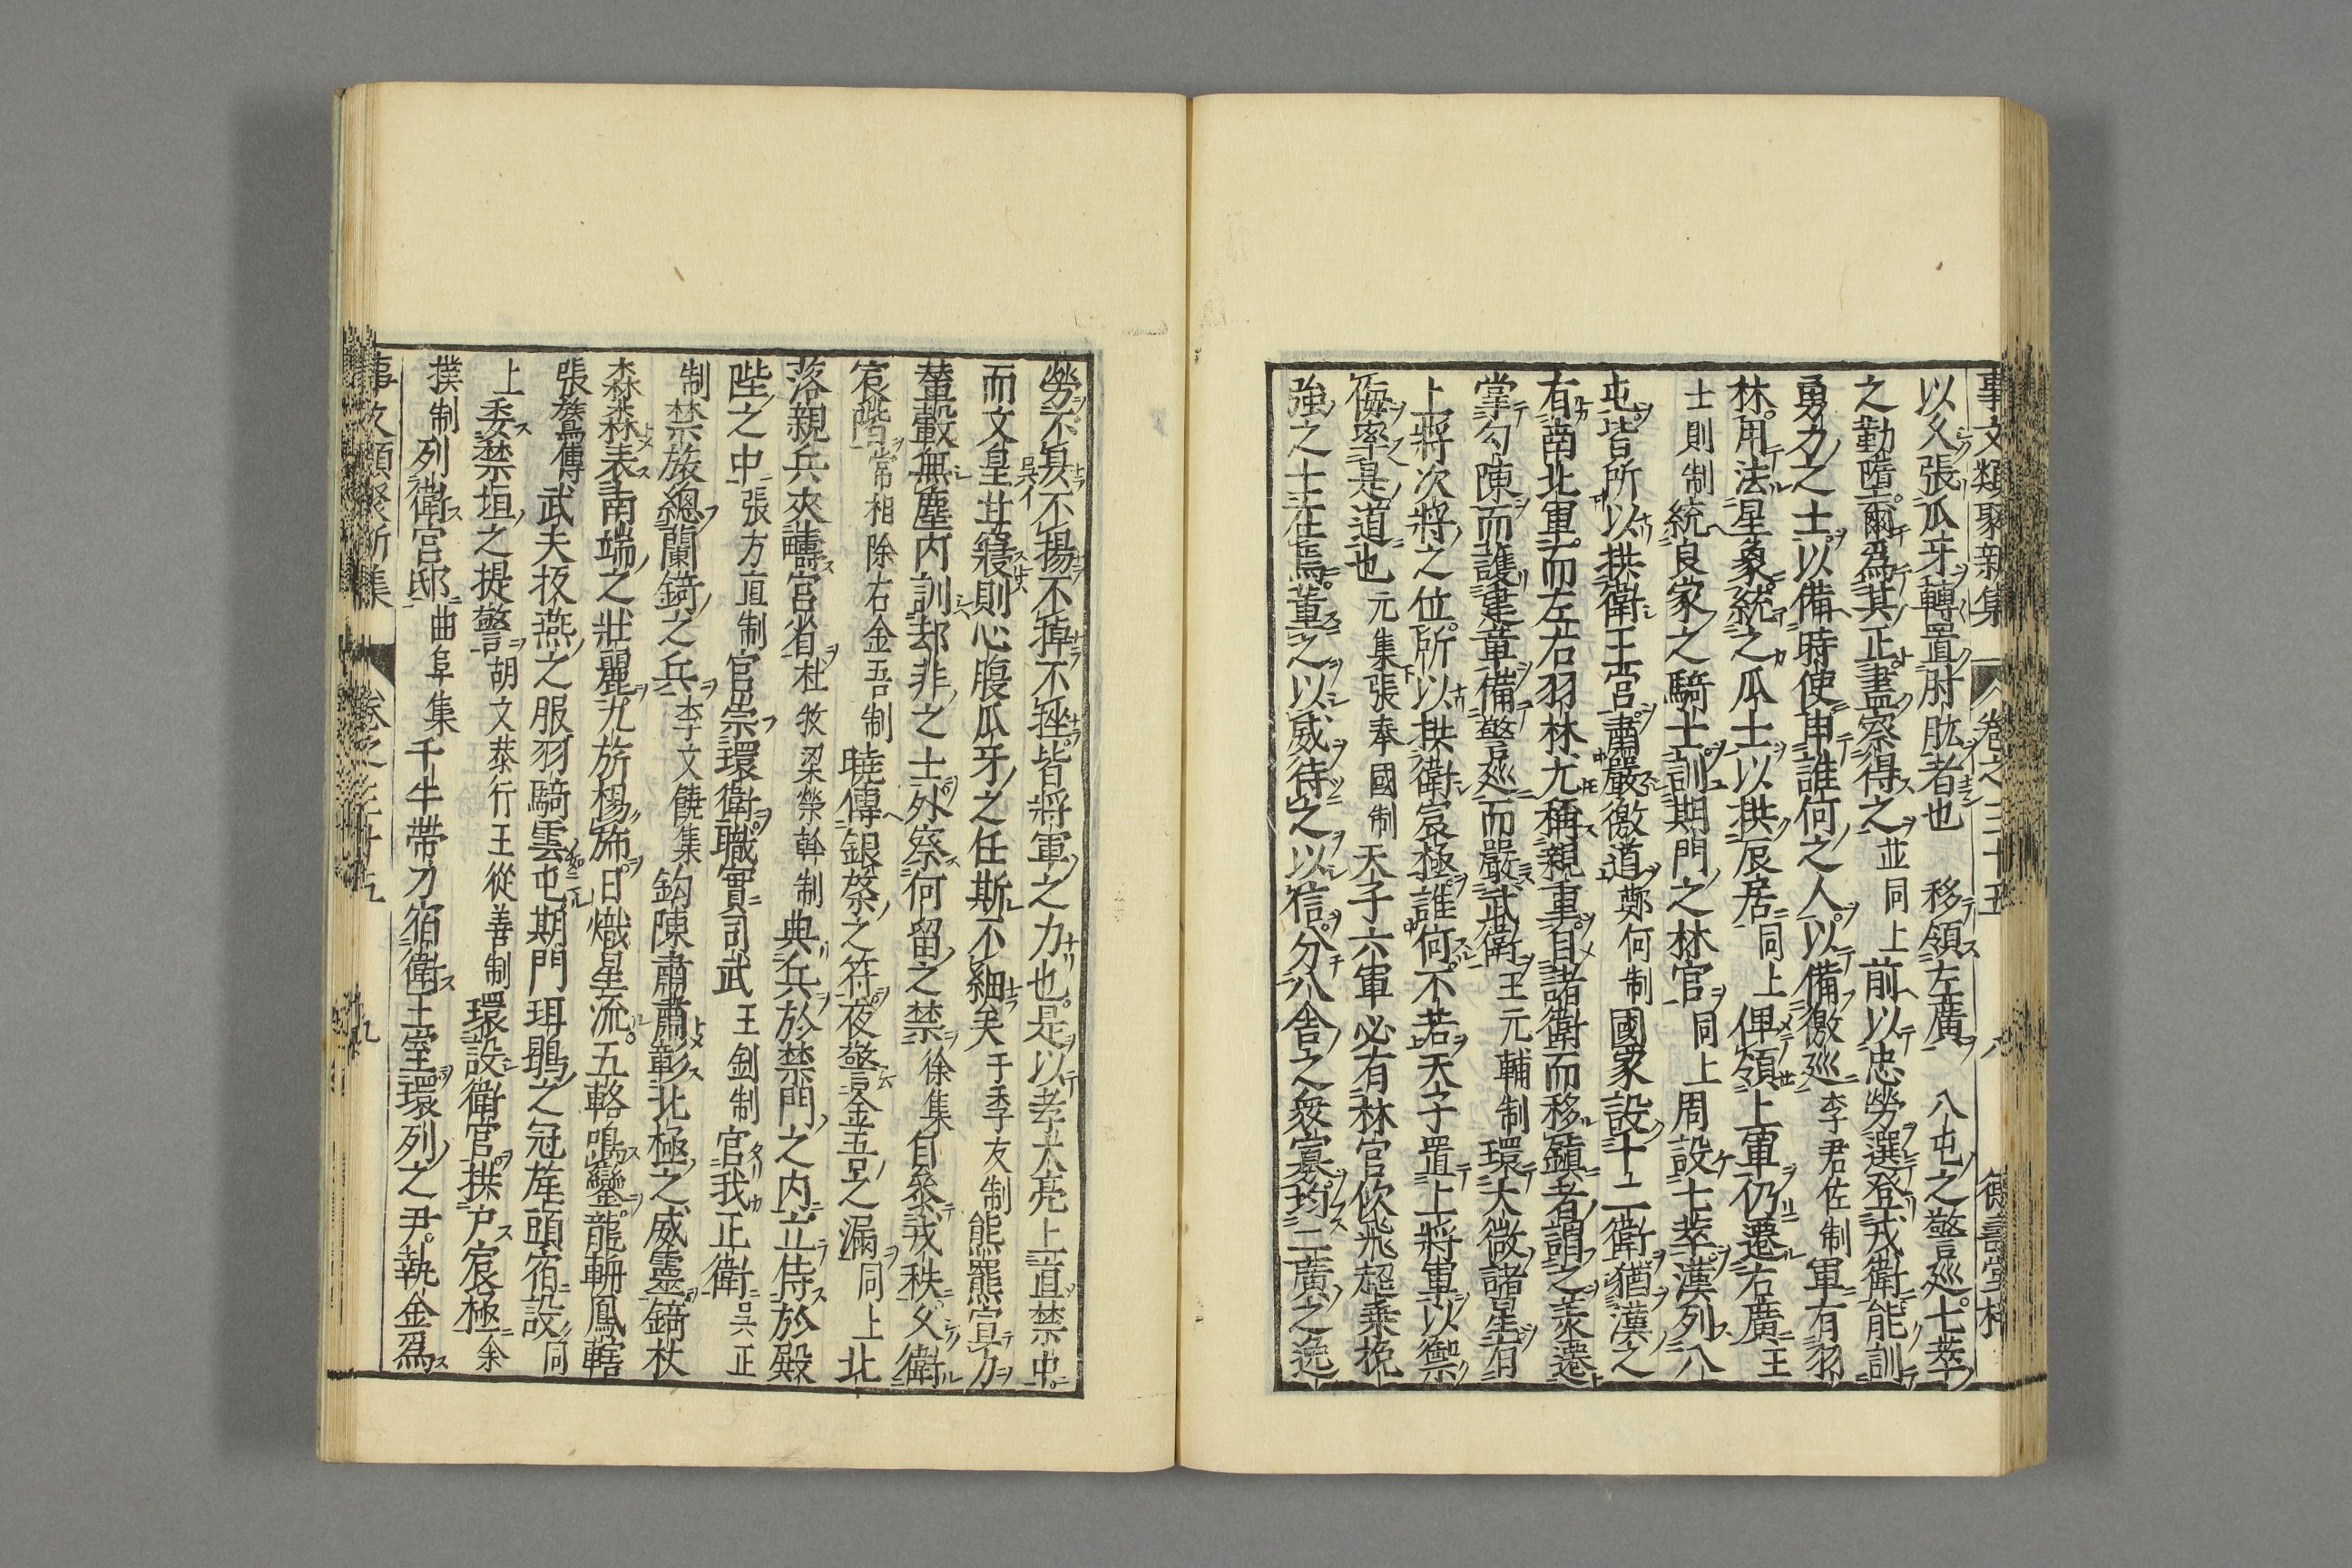 事文類聚新集 卷之三十五 八 德壽堂梓
以久張瓜牙轉置肘肱者也 移領左廣 八屯之警廵七萃
之勤隳爾為其正盡察得之並同上前以忠勞選登戎衛能訓
勇力之士以備時使申誰何之人以備徼廵李君佐制軍有羽
林用法星象統之瓜士以拱辰居同上俾領上軍仍遷右廣王
士則制統良家之騎士訓期門之林官同上周設七萃漢列八
屯皆所以拱衛王宮肅嚴徼道鄭何制國家設十二衛猶漢之
有南北軍而左右羽林尤稱親重自諸衛而移鎮者謂之美遷
掌勾陳而護建章備警廵而嚴武衛王元輔制環大微諸星有
上將次將之位所以拱衛宸極誰何不若天子置上將軍以禦
侮率是道也元集張奉國制天子六軍必有林官佽飛超乗挽
強之士在焉董之以威待之以信分八舍之衆寡均二廣之逸
勞不㚖不揚不𨹟不挫皆將軍之力也是以孝大亮上直禁中
而文皇甘寢則心腹瓜牙之任斯不細矣于季友制熊羆宣力
輦轂無塵内訓却非之士外察何留之禁徐集自叅戎秩父衛
宸階常相除右金吾制曉傳銀棨之符夜警金吾之漏同上北
落親兵夾疇宮省杜牧梁榮幹制典兵於禁門之内立侍於殿
陛之中張方直制官崇環衛職實司武王釗制官我正衛吳正
制禁旅總闌錡之兵李文饒集鈎陳肅肅彰北極之威靈錡杖
森森表南端之壯麗九旂楊斾日熾星流五輅鳴鑾龍軿鳳轄
張簇鳥傳武夫抜燕之服羽騎雲屯期門珥鶡之冠旄頭宿設同
上委禁垣之提警胡文恭行王從善制環設衛官拱户宸極余
撲制列衛宮邸曲阜集千牛帯刀宿衛王室環列之尹執金為
事文類聚新集 卷之三十五 九